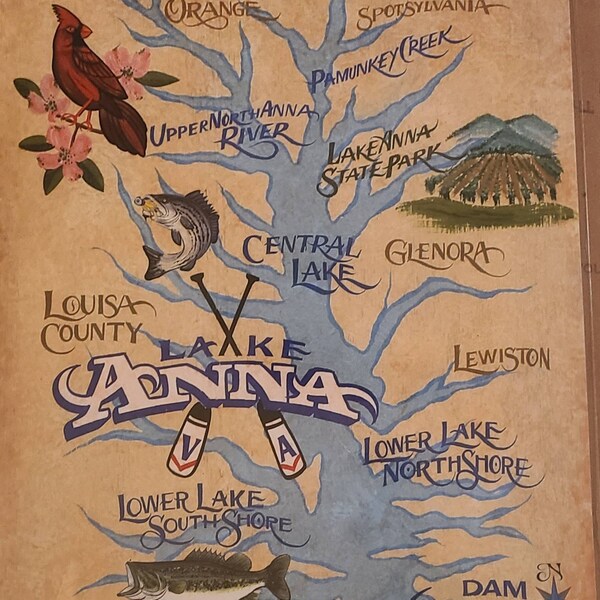 ORANGE
SPOTSYLVANIA
PAMUNKEY CREEK
UPPER NORTH ANNA
RIVER
LAKE ANNA
STATE PARK
CENTRAL
LAKE
GLENORA
LOUISA
COUNTY
LAKE
ANNA
LEWISTON
V A
LOWER LAKE
NORTH SHORE
LOWER LAKE
SOUTH SHORE
N
DAM